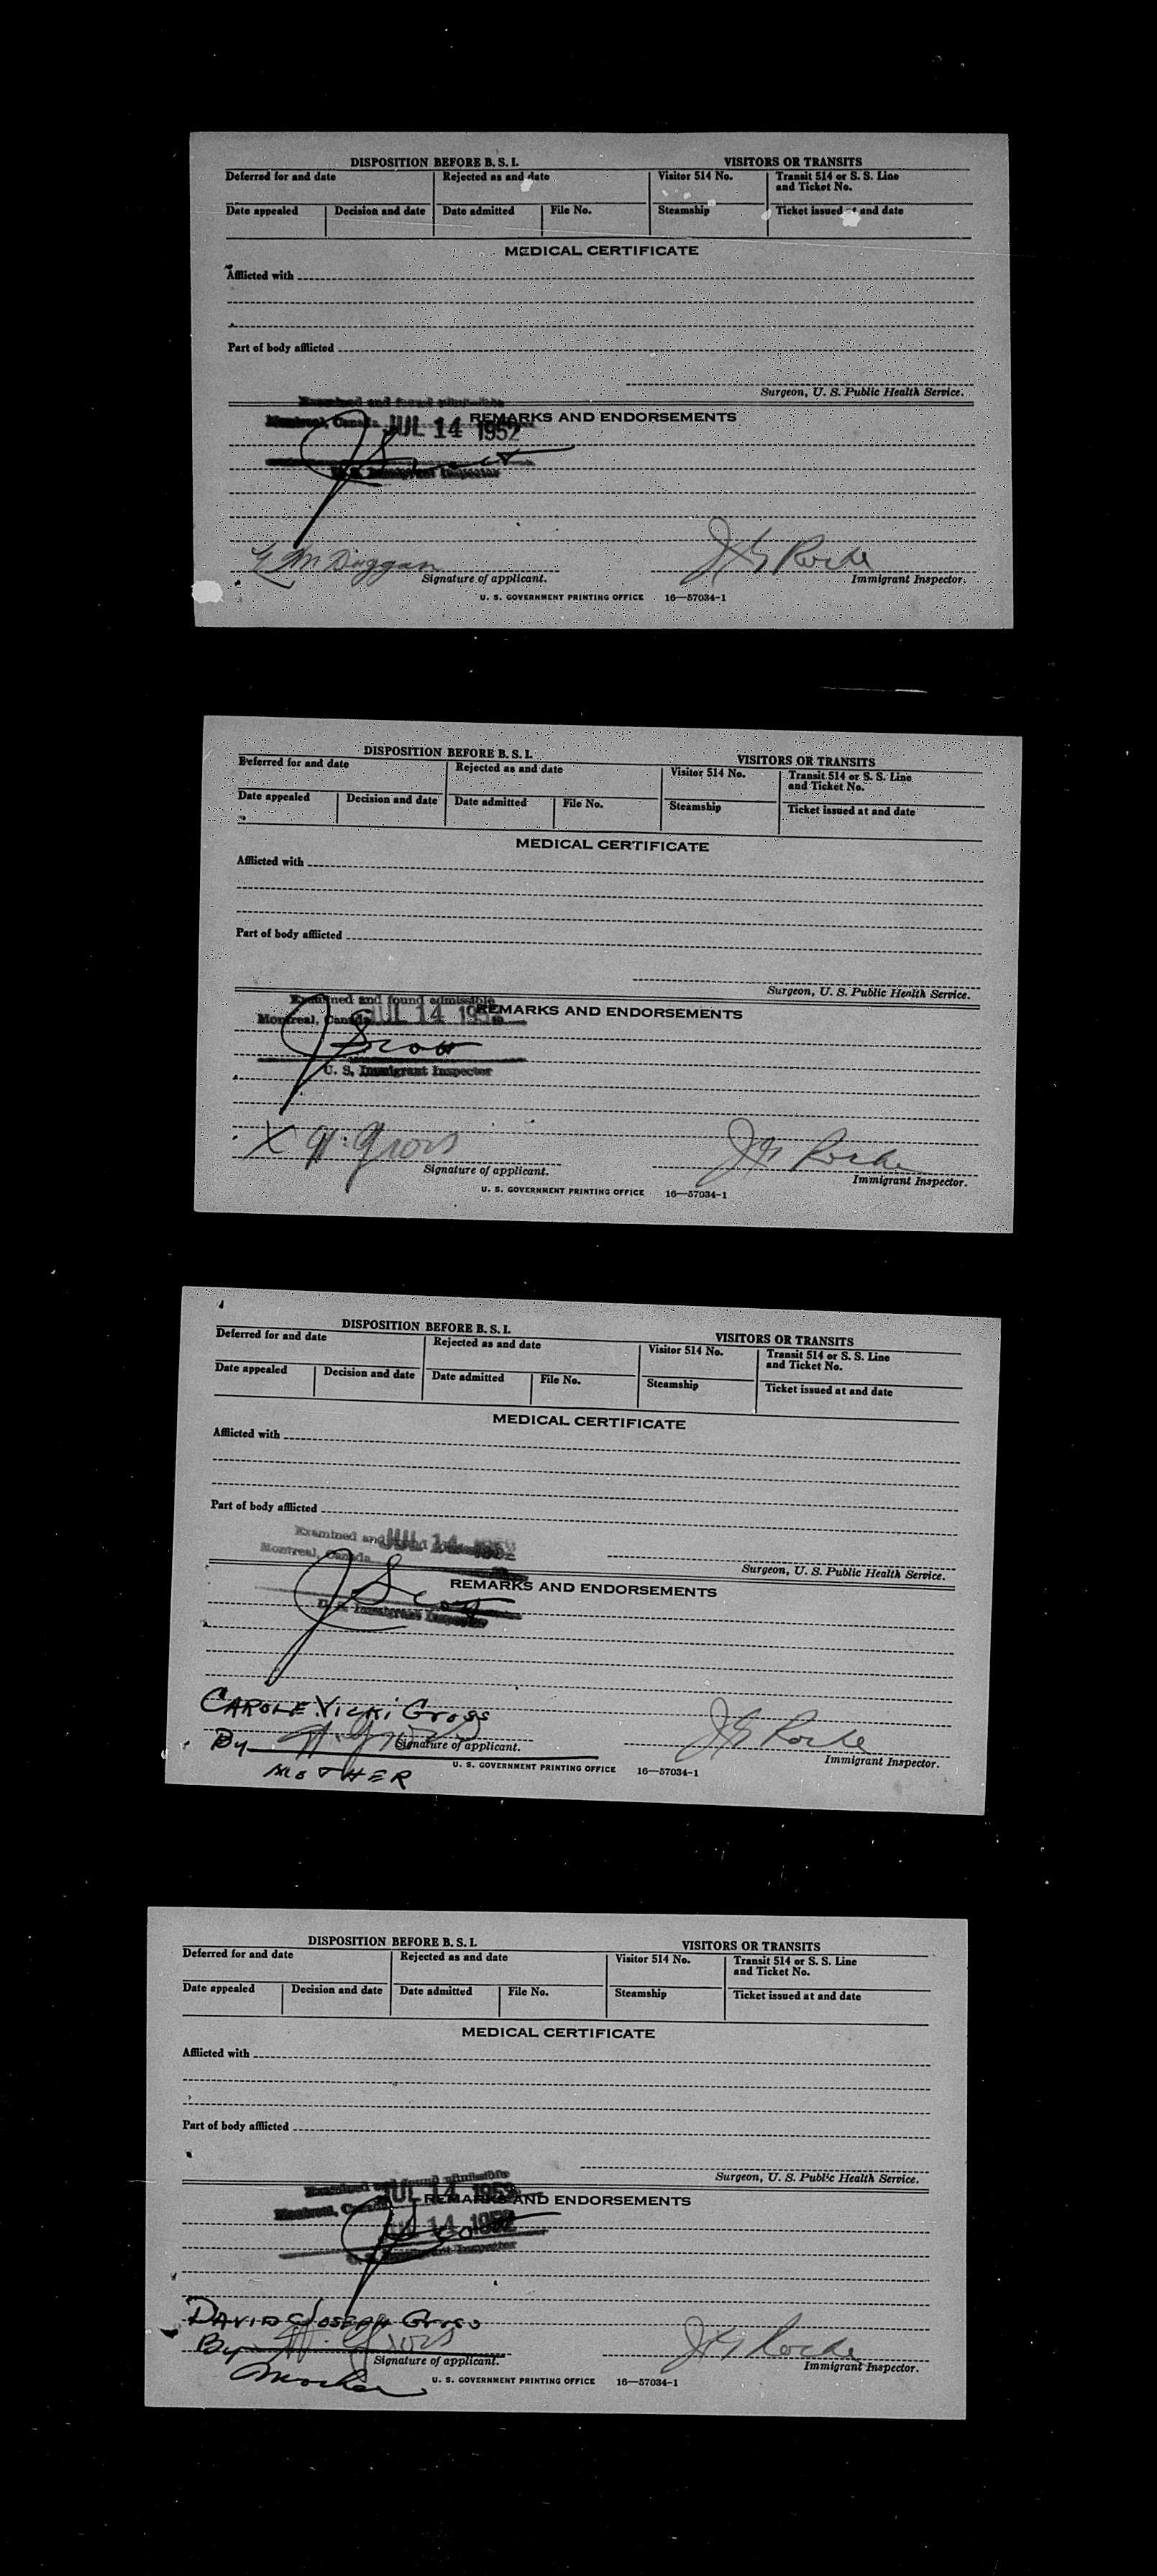 DISPOSITION BEFORE B. S. I. VISITORS OR TRANSITS
Deferred for and date Rejected as and date Visitor 514 No. Transit 514 or S. S. Line and Ticket No.
Date appealed Decision and date Date admitted File No. Steamship Ticket issued at and date
MEDICAL CERTIFICATE
Afflicted with
Part of body afflicted
Surgeon, U. S. Public Health Service.
Examined and found admissible
REMARKS AND ENDORSEMENTS
Montreal, Canada JUL 14 1952
U. S. Immigrant Inspector
M Duggan
Signature of applicant. Immigrant Inspector.
U. S. GOVERNMENT PRINTING OFFICE 16—57034-1
DISPOSITION BEFORE B. S. I. VISITORS OR TRANSITS
Deferred for and date Rejected as and date Visitor 514 No. Transit 514 or S. S. Line and Ticket No.
Date appealed Decision and date Date admitted File No. Steamship Ticket issued at and date
MEDICAL CERTIFICATE
Afflicted with
Part of body afflicted
Surgeon, U. S. Public Health Service.
Examined and found admissible
REMARKS AND ENDORSEMENTS
Montreal, Canada JUL 14 195
U. S. Immigrant Inspector
X H. Gross
Signature of applicant. Immigrant Inspector.
U. S. GOVERNMENT PRINTING OFFICE 16—57034-1
DISPOSITION BEFORE B. S. I. VISITORS OR TRANSITS
Deferred for and date Rejected as and date Visitor 514 No. Transit 514 or S. S. Line and Ticket No.
Date appealed Decision and date Date admitted File No. Steamship Ticket issued at and date
MEDICAL CERTIFICATE
Afflicted with
Part of body afflicted
Examined and JUL 14 1952
Montreal, Canada
Surgeon, U. S. Public Health Service.
REMARKS AND ENDORSEMENTS
U. S. Immigrant Inspector
CAROLE VICKI Gross
By H. Gross
Signature of applicant. Immigrant Inspector.
MOTHER
U. S. GOVERNMENT PRINTING OFFICE 16—57034-1
DISPOSITION BEFORE B. S. I. VISITORS OR TRANSITS
Deferred for and date Rejected as and date Visitor 514 No. Transit 514 or S. S. Line and Ticket No.
Date appealed Decision and date Date admitted File No. Steamship Ticket issued at and date
MEDICAL CERTIFICATE
Afflicted with
Part of body afflicted
Surgeon, U. S. Public Health Service.
Examined and found admissible
Montreal, Canada JUL 14 1952
REMARKS AND ENDORSEMENTS
JUL 14 1952
U. S. Immigrant Inspector
DAVID JOSEPH Gross
By H. Gross
Signature of applicant. Immigrant Inspector.
Mother
U. S. GOVERNMENT PRINTING OFFICE 16—57034-1